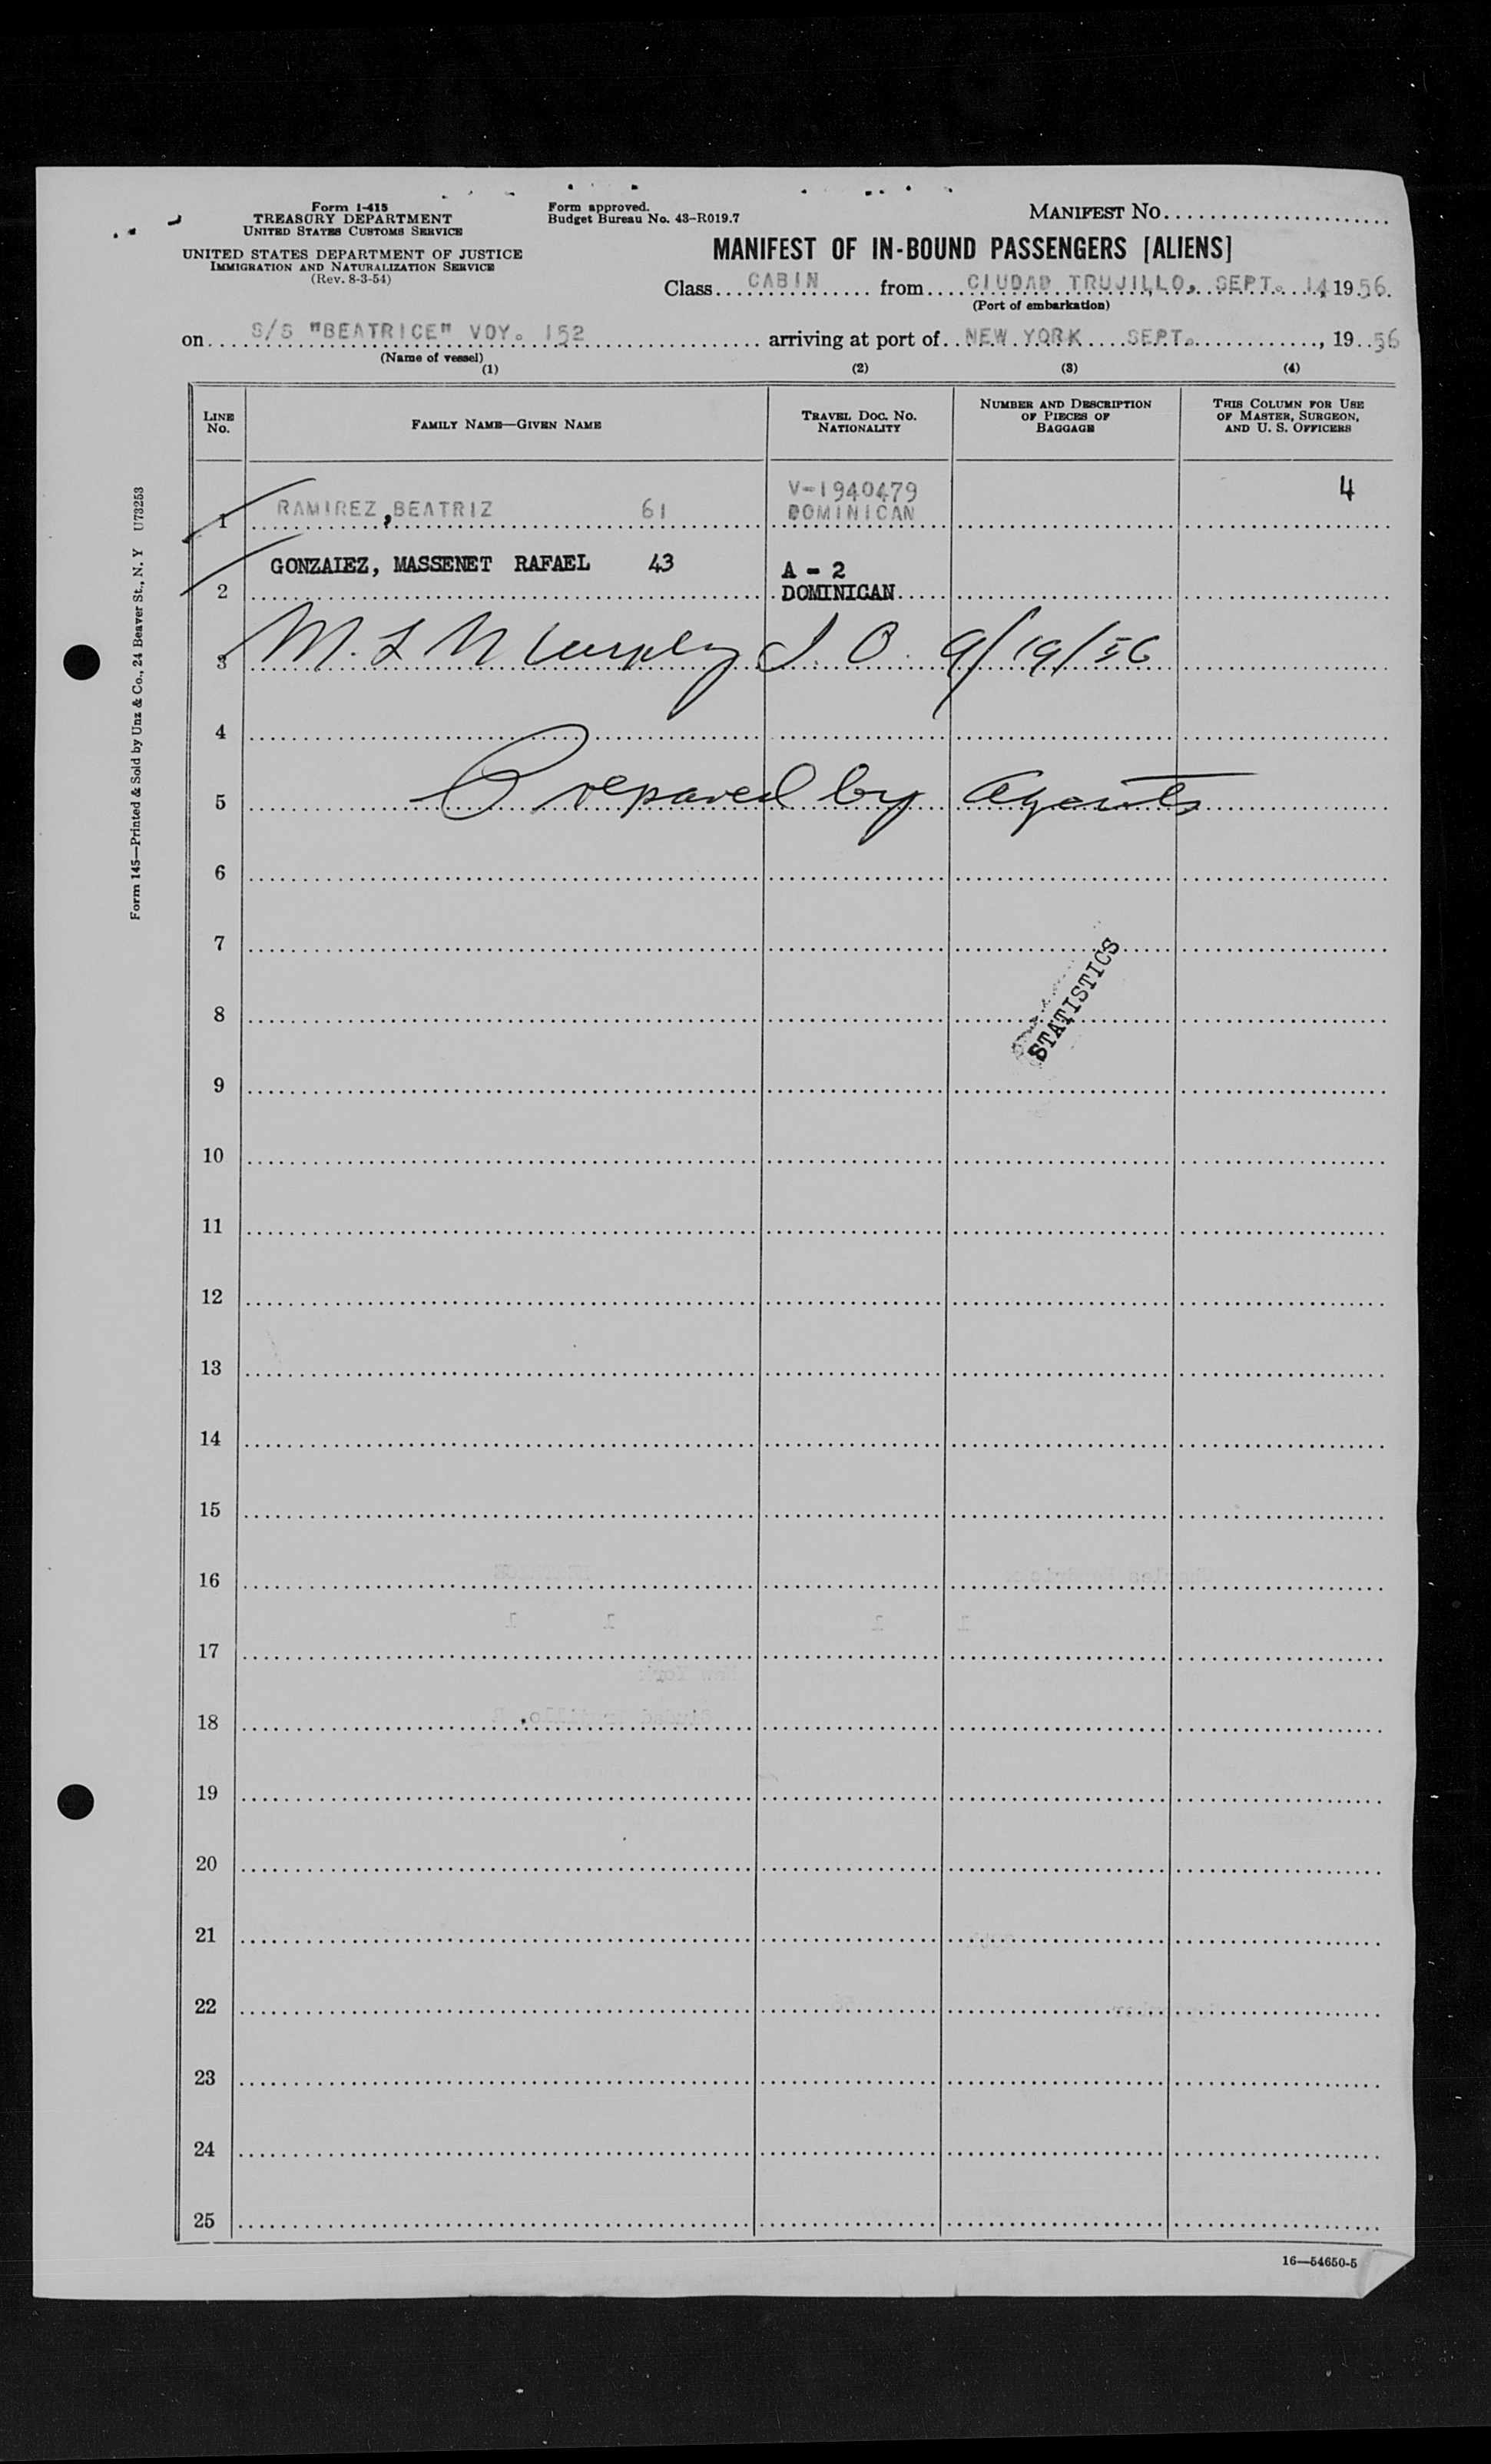 Form I-415
TREASURY DEPARTMENT
UNITED STATES CUSTOMS SERVICE
UNITED STATES DEPARTMENT OF JUSTICE
IMMIGRATION AND NATURALIZATION SERVICE
(Rev. 8-3-54)
Form approved.
Budget Bureau No. 43-R019.7
MANIFEST NO.
MANIFEST OF IN-BOUND PASSENGERS [ALIENS]
Class CABIN from CIUDAD TRUJILLO, SEPT. 14, 1956.
(Port of embarkation)
on S/S "BEATRICE" VOY. 152 arriving at port of NEW YORK SEPT. , 19 56
(Name of vessel)
(1) (2) (3) (4)
LINE NO. FAMILY NAME—GIVEN NAME TRAVEL DOC. NO. NATIONALITY NUMBER AND DESCRIPTION OF PIECES OF BAGGAGE THIS COLUMN FOR USE OF MASTER, SURGEON, AND U. S. OFFICERS
1 RAMIREZ, BEATRIZ 61 V-1940479 DOMINICAN 4
2 GONZAIEZ, MASSENET RAFAEL 43 A - 2 DOMINICAN
3 M. L Murphy I. O. 9/19/56
4
5 Prepared by Agents
6
7
STATISTICS
8
9
10
11
12
13
14
15
16
17
18
19
20
21
22
23
24
25
16—54650-5
Form 145—Printed & Sold by Unz & Co., 24 Beaver St., N. Y U73253